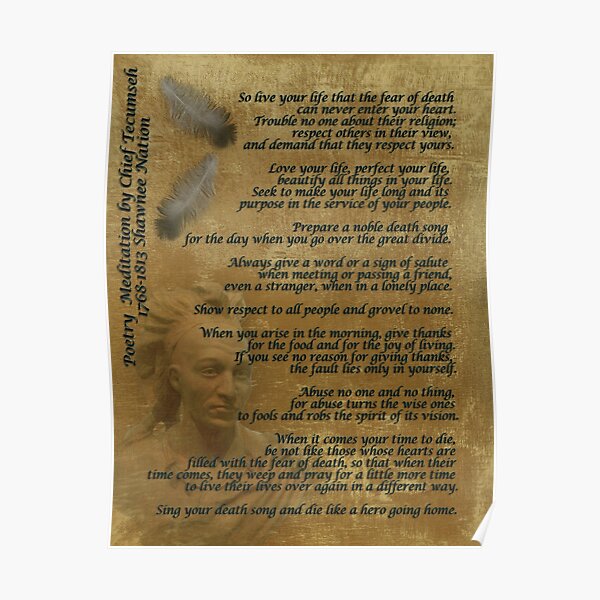 Poetry Meditation by Chief Tecumseh
1768-1813 Shawnee Nation
So live your life that the fear of death
can never enter your heart.
Trouble no one about their religion;
respect others in their view,
and demand that they respect yours.
Love your life, perfect your life,
beautify all things in your life.
Seek to make your life long and its
purpose in the service of your people.
Prepare a noble death song
for the day when you go over the great divide.
Always give a word or a sign of salute
when meeting or passing a friend,
even a stranger, when in a lonely place.
Show respect to all people and grovel to none.
When you arise in the morning, give thanks
for the food and for the joy of living.
If you see no reason for giving thanks,
the fault lies only in yourself.
Abuse no one and no thing,
for abuse turns the wise ones
to fools and robs the spirit of its vision.
When it comes your time to die,
be not like those whose hearts are
filled with the fear of death, so that when their
time comes, they weep and pray for a little more time
to live their lives over again in a different way.
Sing your death song and die like a hero going home.